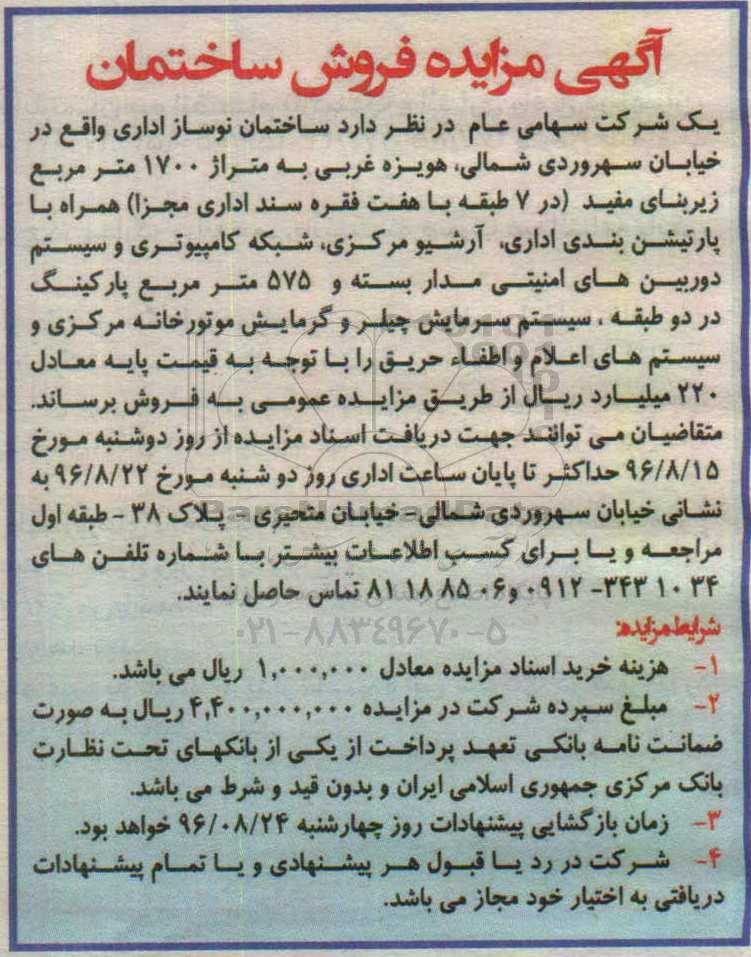 آگهی مزایده فروش ساختمان
یک شرکت سهامی عام در نظر دارد ساختمان نوساز اداری واقع در
خیابان سهروردی شمالی، هویزه غربی به متراژ ۱۷۰۰ متر مربع
زیربنای مفید (در ۷ طبقه با هفت فقره سند اداری مجزا) همراه با
پارتیشن بندی اداری، آرشیو مرکزی، شبکه کامپیوتری و سیستم
دوربین های امنیتی مدار بسته و ۵۷۵ متر مربع پارکینگ
در دو طبقه ، سیستم سرمایش چیلر و گرمایش موتورخانه مرکزی و
سیستم های اعلام و اطفاء حریق را با توجه به قیمت پایه معادل
۲۲۰ میلیارد ریال از طریق مزایده عمومی به فروش برساند.
متقاضیان می توانند جهت دریافت اسناد مزایده از روز دوشنبه مورخ
۹۶/۸/۱۵ حداکثر تا پایان ساعت اداری روز دو شنبه مورخ ۹۶/۸/۲۲ به
نشانی خیابان سهروردی شمالی - خیابان متحیری - پلاک ۳۸ - طبقه اول
مراجعه و یا برای کسب اطلاعات بیشتر با شماره تلفن های
۰۹۱۲-۳۴۳ ۱۰ ۳۴ و ۸۱ ۱۸ ۸۵ ۰۶ تماس حاصل نمایند.
شرایط مزایده:
۰۲۱-۸۸۳۴۹۶۷۰-۵
۱- هزینه خرید اسناد مزایده معادل ۱,۰۰۰,۰۰۰ ریال می باشد.
۲- مبلغ سپرده شرکت در مزایده ۴,۴۰۰,۰۰۰,۰۰۰ ریال به صورت
ضمانت نامه بانکی تعهد پرداخت از یکی از بانکهای تحت نظارت
بانک مرکزی جمهوری اسلامی ایران و بدون قید و شرط می باشد.
۳- زمان بازگشایی پیشنهادات روز چهارشنبه ۹۶/۰۸/۲۴ خواهد بود.
۴- شرکت در رد یا قبول هر پیشنهادی و یا تمام پیشنهادات
دریافتی به اختیار خود مجاز می باشد.